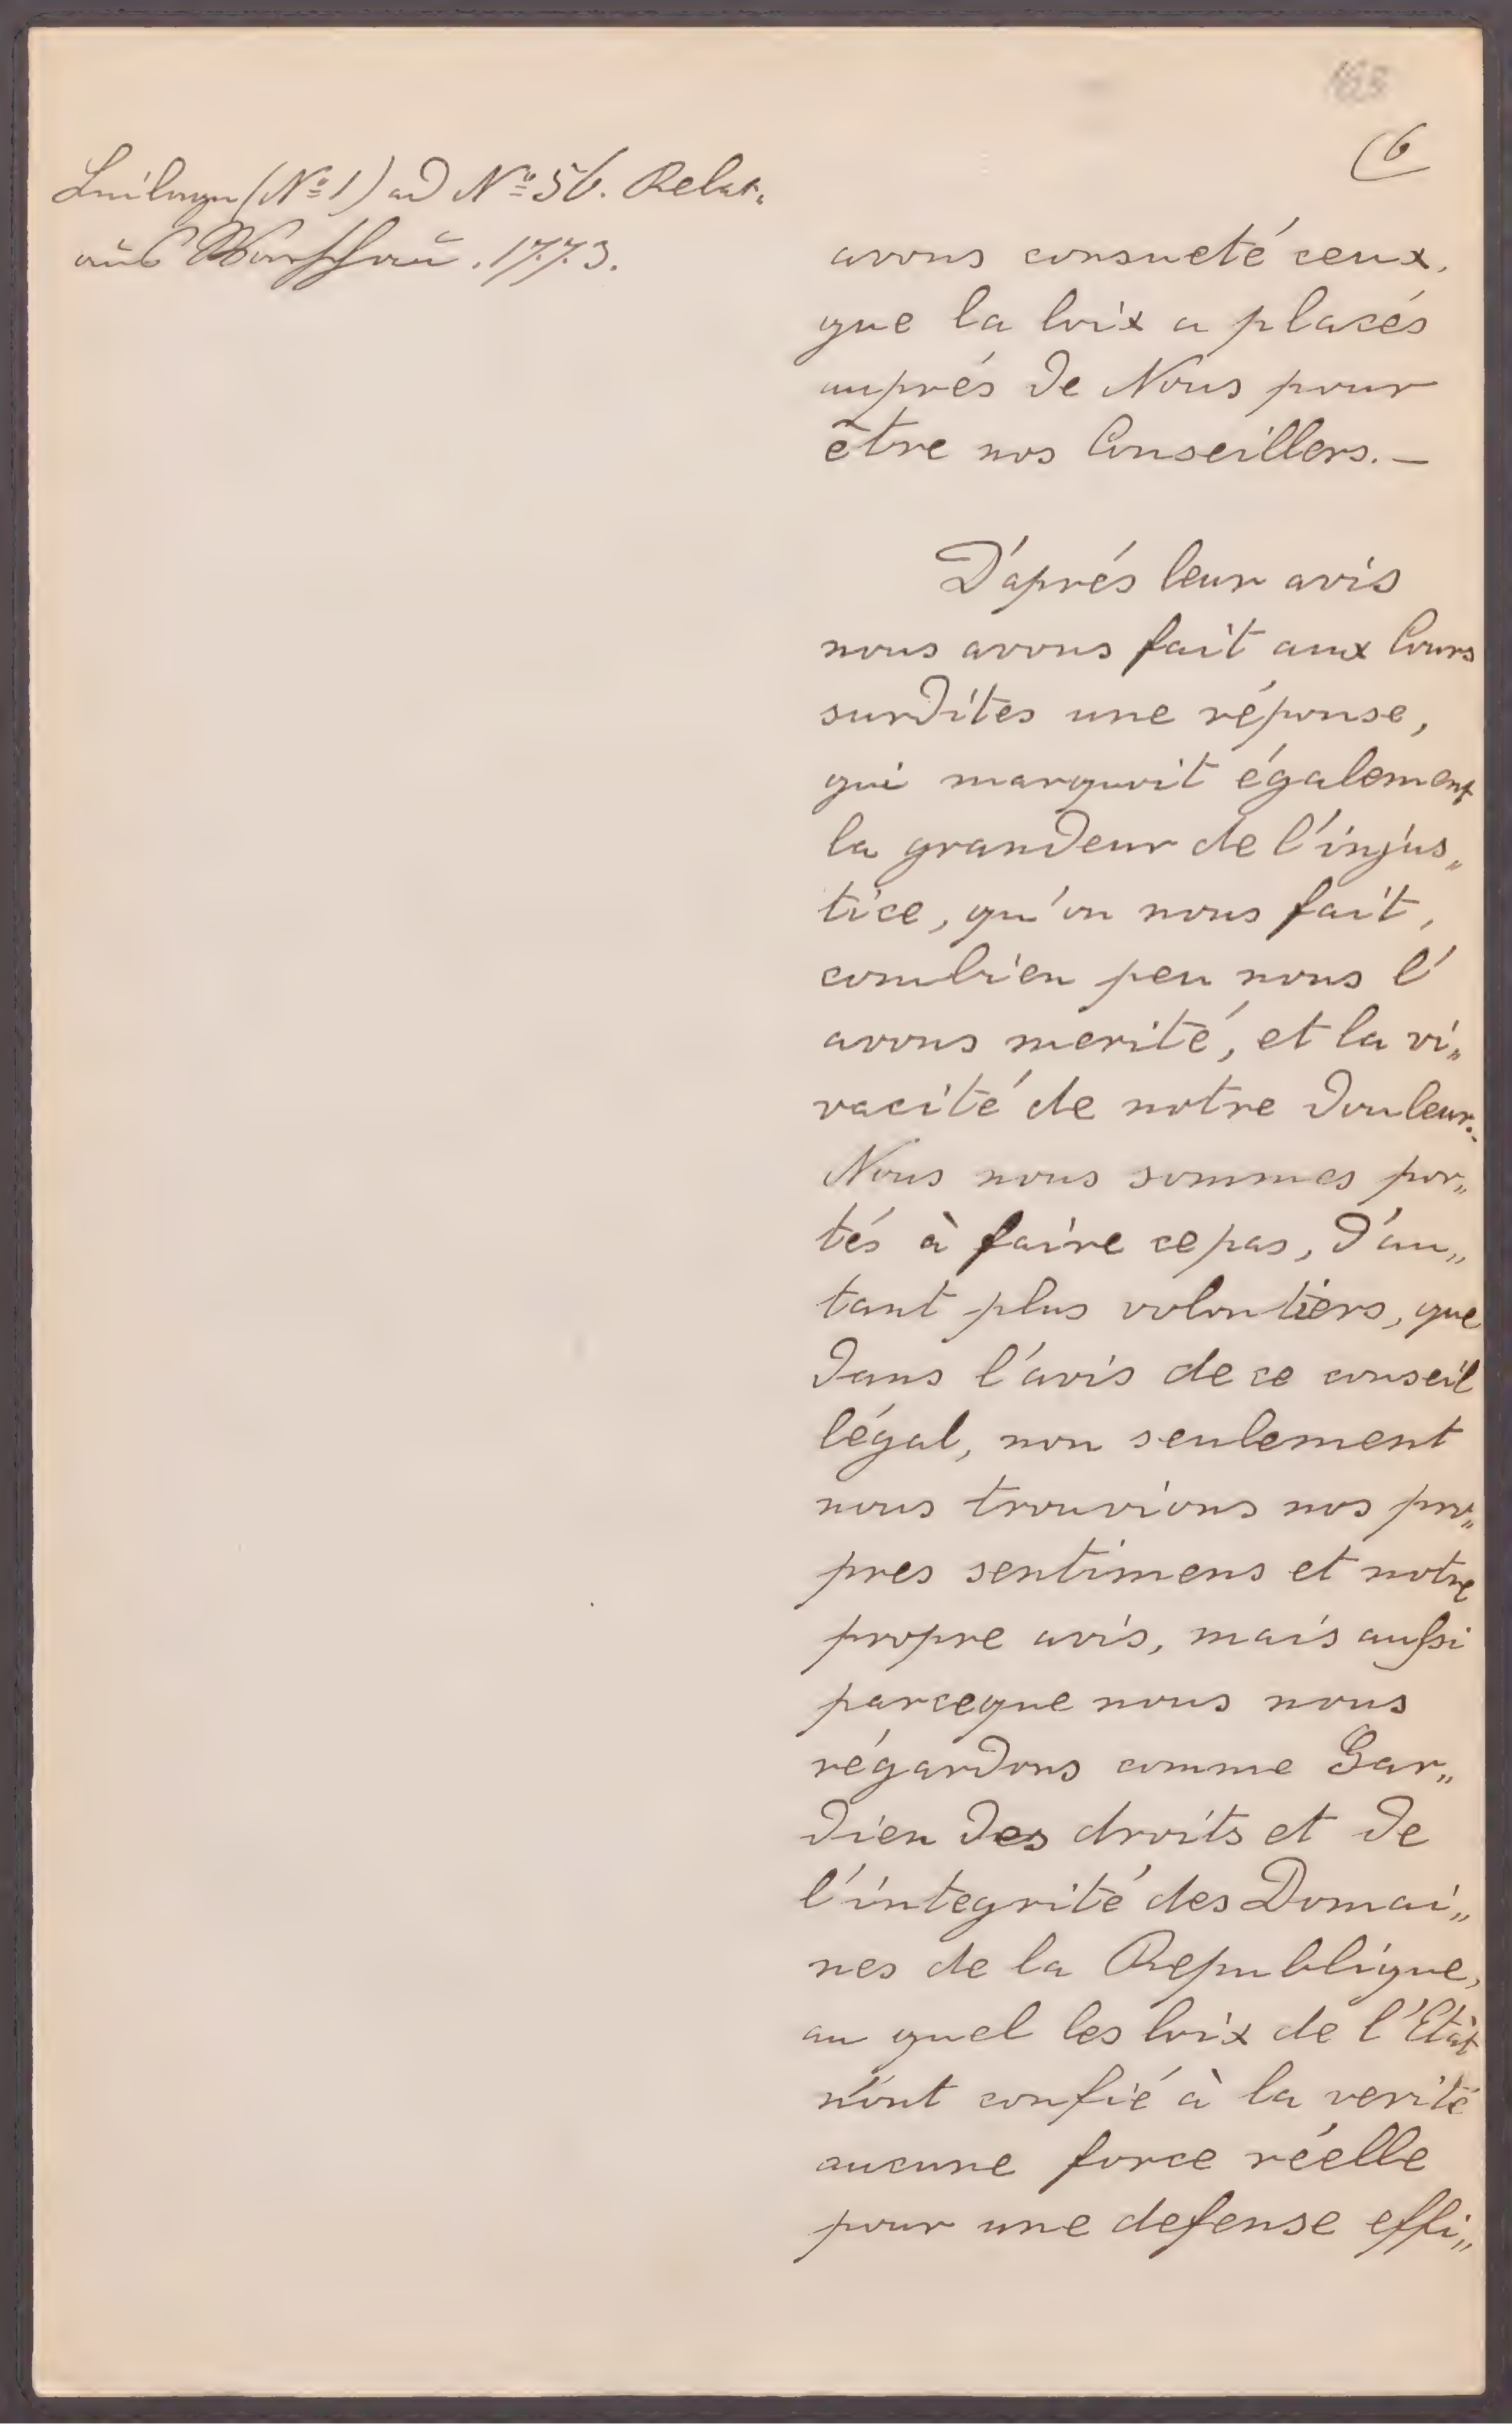 6
Beilagen (Nº 1) ad Nº 56. Relat.
aus Warschau. 1773.
avons consueté ceux,
que la loix a placés
auprés de Nous pour
être nos Conseillers. —
D'aprés leur avis
nous avons fait aux Cours
surdites une réponse,
qui marquoit également
la grandeur de l'injus„
tice, qu'on nous fait,
combien peu nous l'
avons merité, et la vi„
vacité de notre douleur.
Nous nous sommes por„
tés à faire ce pas, d'au„
tant plus volontiers, que
dans l'avis de ce conseil
légal, non seulement
nous trouvions nos pro„
pres sentimens et notre
propre avis, mais aussi
parceque nous nous
régardons comme Gar„
dien des droits et de
l'integrité des Domai„
nes de la Republique,
au quel les loix de l'Etàt
n'ont confié à la verité
aucune force réelle
pour une defense effi„